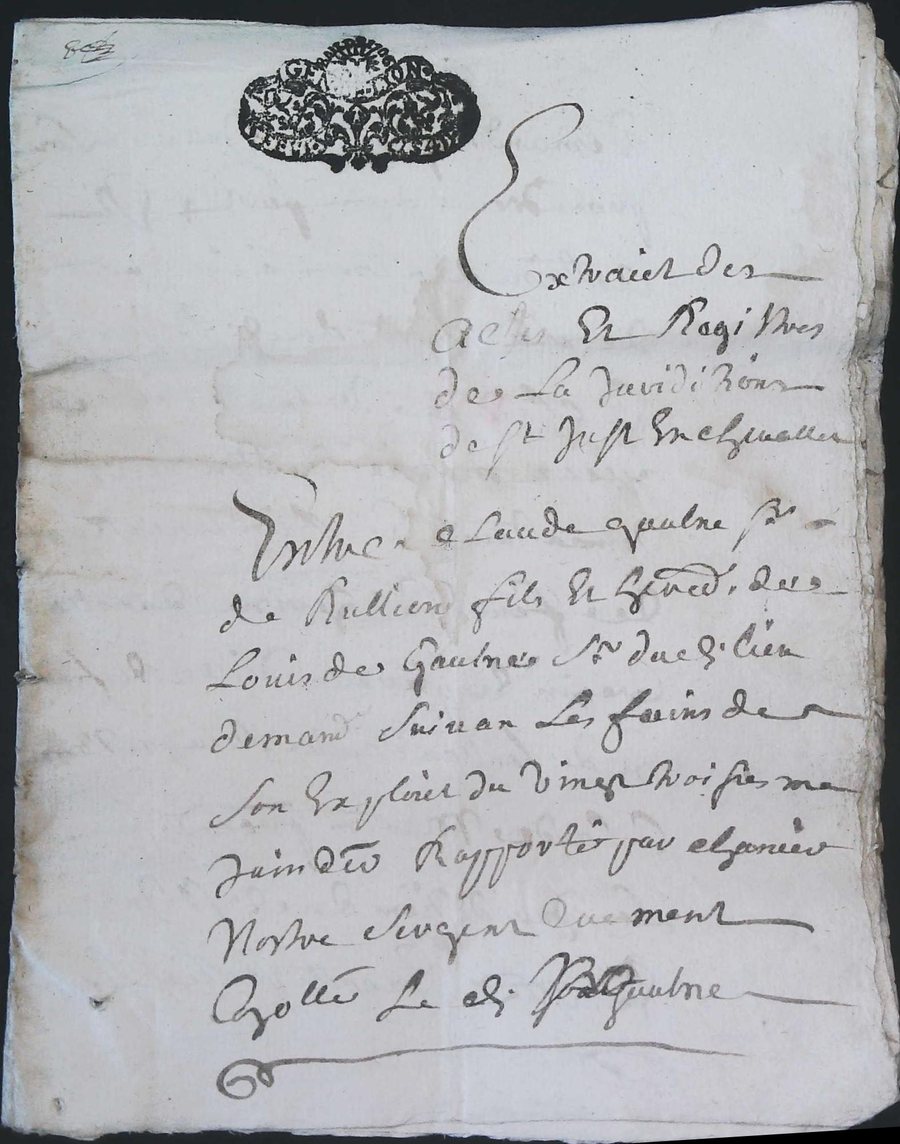 GEN
Extraict des
actes Et Regi stres
de La Juridi tion
de st Just En chevallet
Entre claude gaulne sr
de Rullion fils Et hered. de
Louis de Gaulne Sr dud. lieu
demand suivan Les fains de
son Exploict du Vingt troisiesme
Juin der Rapporté par
Nostre sergent duement
Le d. Gaulne